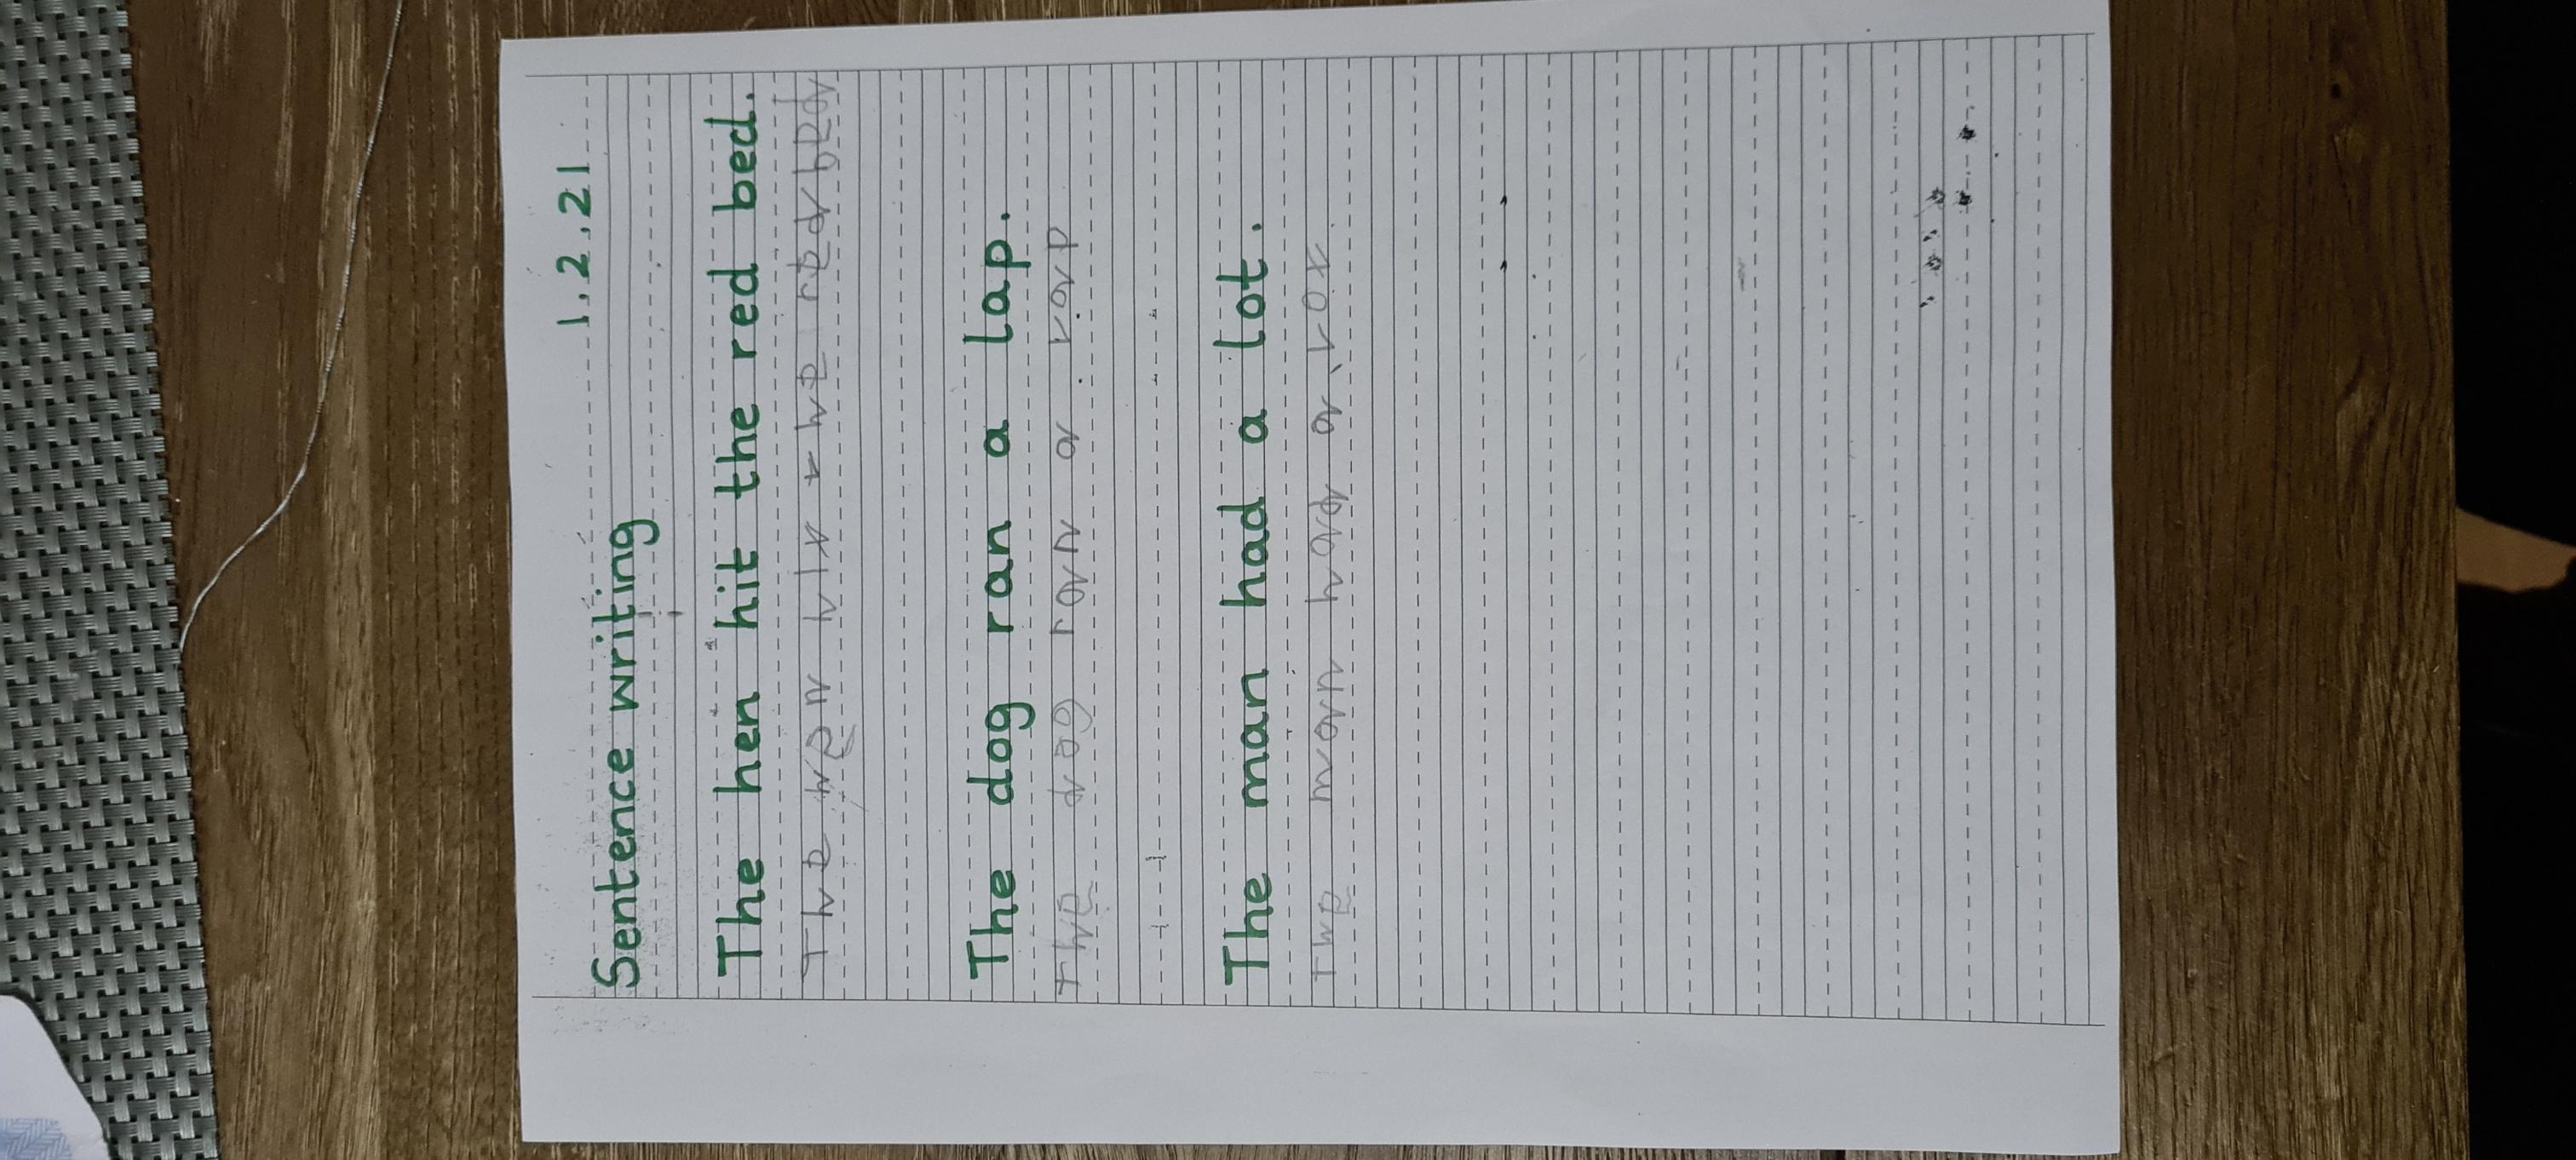 1.2.21
Sentence writing
The hen hit the red bed.
The hen hit the red bed
The dog ran a lap.
The dog ran a lap
The man had a lot.
The man had a lot